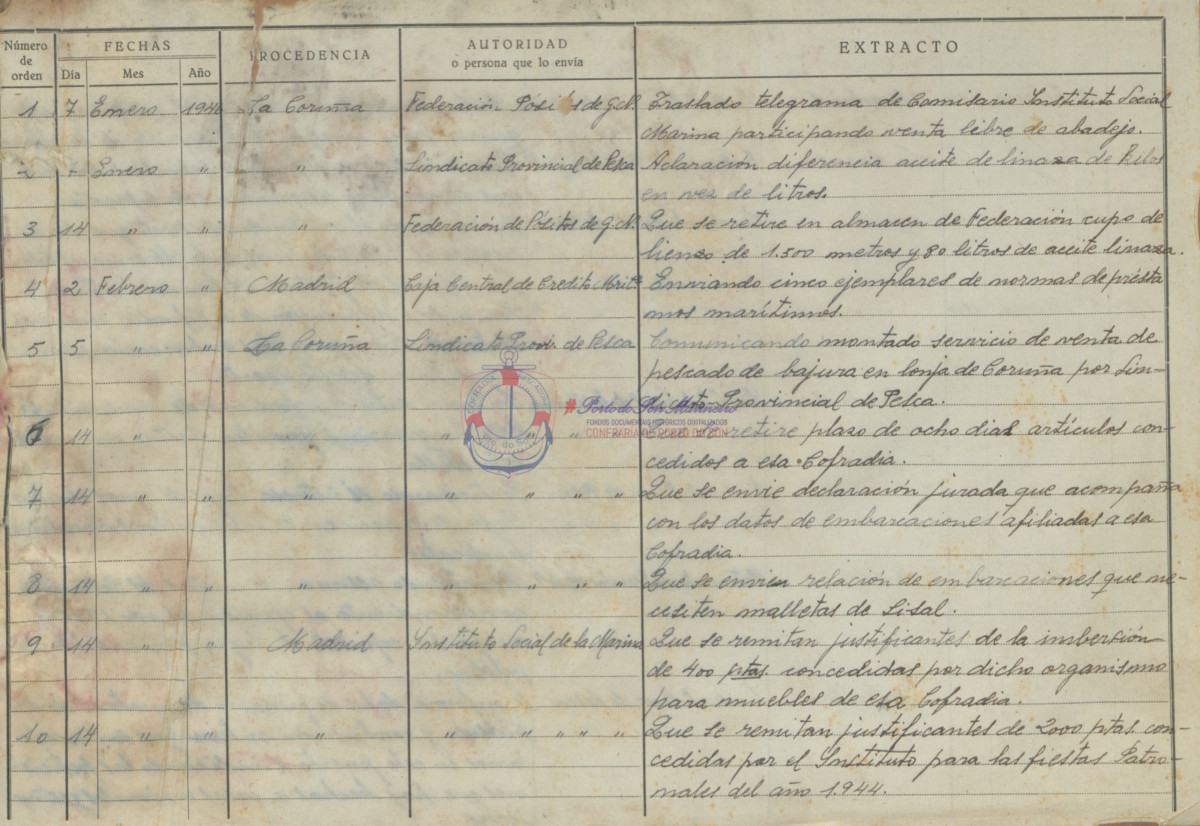 Número de orden FECHAS PROCEDENCIA AUTORIDAD o persona que lo envía EXTRACTO
Día Mes Año
1 7 Enero La Coruña Federación Pósitos de G.N. Traslado telegrama de Comisario Instituto Social
Marina participando venta libre de abadejo.
2 Enero " " Sindicato Provincial de Pesca Aclaración diferencia aceite de linaza de Kilos
en vez de litros.
3 14 " " " Federación de Pósitos de G.N. Que se retire en almacen de Federación cupo de
lienzo de 1.500 metros y 80 litros de aceite linaza.
4 2 Febrero " Madrid Caja Central de Credito Mritº Enviando cinco ejemplares de normas de présta
mos marítimos.
5 5 " " La Coruña Sindicato Provi. de Pesca Comunicando montado servicio de venta de
pescado de bajura en lonja de Coruña por Sin-
dicato Provincial de Pesca.
6 14 " " " " " " Que se retire plazo de ocho dias artículos con-
cedidos a esa Cofradia.
7 14 " " " " " " " Que se envie declaración jurada que acompaña
con los datos de embarcaciones afiliadas a esa
Cofradia.
8 14 " " " " " " " Que se envien relación de embarcaciones que ne-
cesiten malletas de Sisal.
9 14 " " Madrid Instituto Social de la Marina Que se remitan justificantes de la imbersión
de 400 ptas. concedidas por dicho organismo
para muebles de esa Cofradia.
10 14 " " " " " " " " Que se remitan justificantes de 2000 ptas. con-
cedidas por el Instituto para las fiestas Patro-
nales del año 1.944.
# Porto do Son Mariñeiro
FONDOS DOCUMENTAIS HISTÓRICOS DIXITALIZADOS
CONFRARÍA DE PORTO DO SON